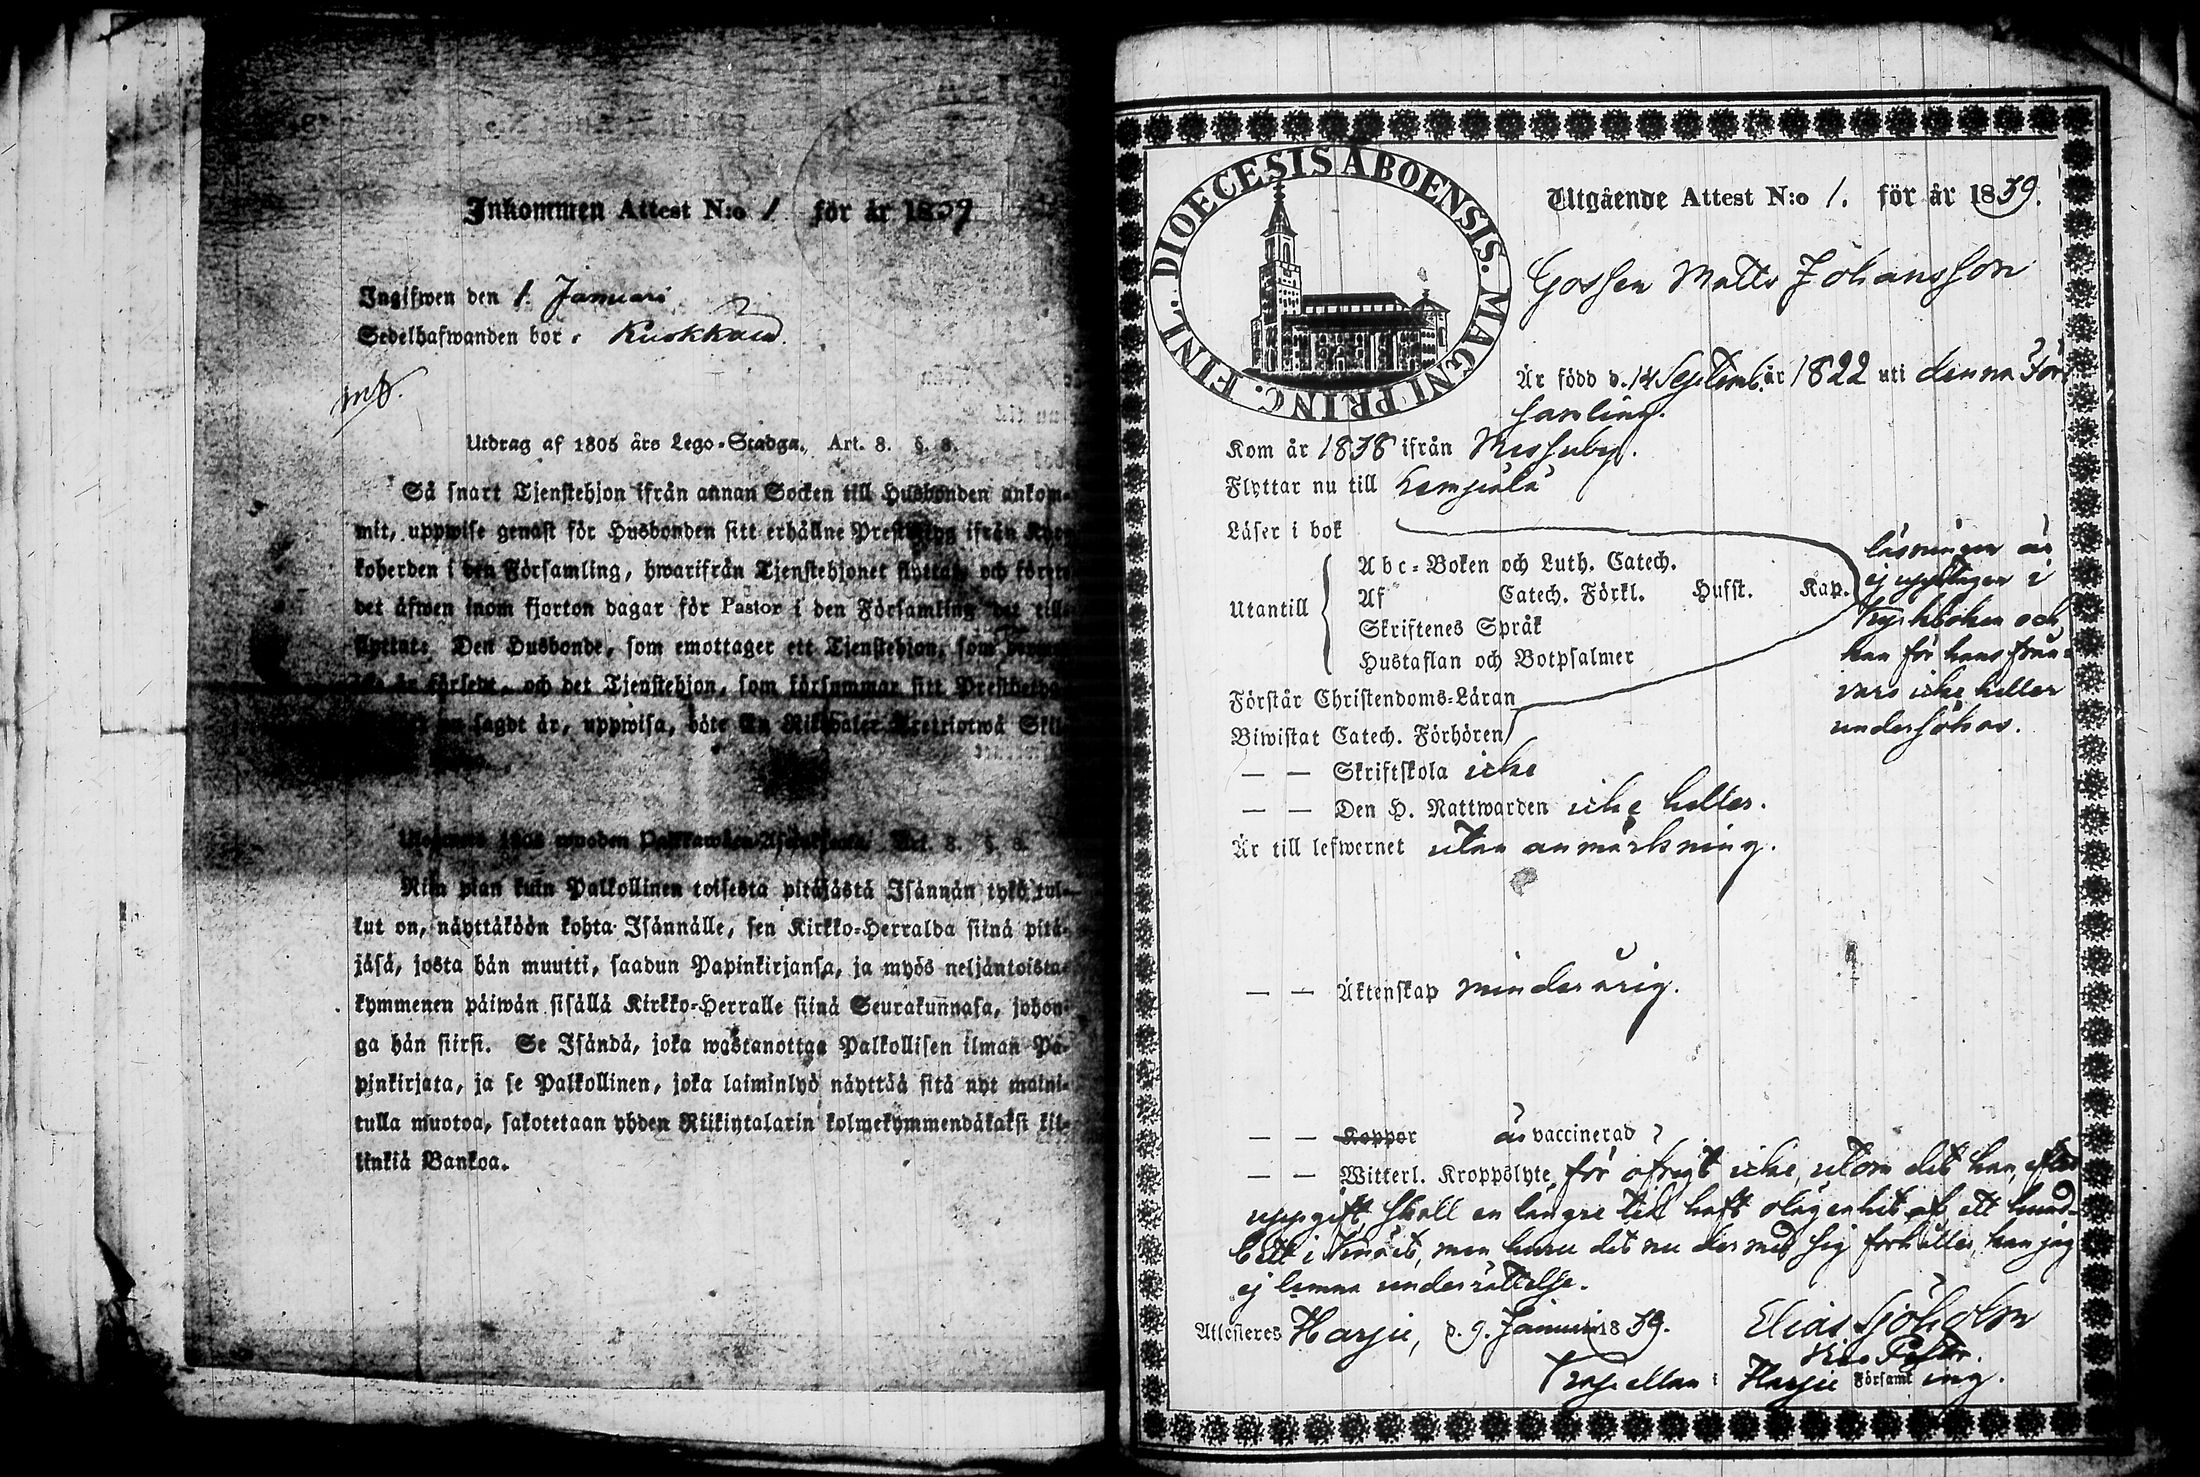 Inkommen Attest N:o 1 för år 1839
Ingifwen den 1. Januari
Sedelhafwanden bor i
Utdrag af 1805 års Lego-Stadga, Art. 8. §. 8.
Så snart Tjenstehjon ifrån annan Socken till Husbonden ankom-
mit, uppwise genast för Husbonden sitt erhållne Prestbetyg ifrån Kyr-
koherden i den Församling, hwarifrån Tjenstehjonet flyttat, och förete
det äfwen inom fjorton dagar för Pastor i den Församling det till-
flyttat. Den Husbonde, som emottager ett Tjenstehjon, som
är försedt, och det Tjenstehjon, som försummar sitt Prestbetyg
sagdt är, uppwisa, böte En Riksdaler Trettiotwå Skil-
Ulosweto 1805 wuoden Palkkawäen Art. 8. §. 8.
Niin pian kuin Palkollinen toisesta pitäjästä Isännän tykö tul-
lut on, näyttäköön kohta Isännälle, sen Kirkko-Herralda siinä pitä-
jäsä, josta hän muutti, saadun Papinkirjansa, ja myös neljäntoista-
kymmenen päiwän sisällä Kirkko-Herralle siinä Seurakunnasa, johon-
ga hän siirsi. Se Isändä, joka wastanottaa Palkollisen ilman Pa-
pinkirjata, ja se Palkollinen, joka laiminlyö näyttää sitä nyt maini-
tulla muotoa, sakotetaan yhden Riikintalarin kolmekymmendäkaksi kil-
linkiä Bankoa.
DIOECESIS ÅBOENSIS. MAGNI PRINC. FINL.
Utgående Attest N:o 1. för år 1839.
Gossen Matts Johansson
Är född d. 14 Septemb. år 1822 uti denna För-
samling.
Kom år 1838 ifrån Messuby.
Flyttar nu till Lempälä
Läser i bok
Utantill
Abc-Boken och Luth. Catech.
Af Catech. Förkl. Hufst. Kap.
Skriftenes Språk
Hustaflan och Botpsalmer
läsningen är
ej upptagen i
Kyrkboken och
kan för hans från-
varo icke heller
undersökas.
Förstår Christendoms-Läran
Biwistat Catech. Förhören
— — Skriftskola icke
— — Den H. Nattwarden icke heller.
Är till lefwernet utan anmärkning.
— — Äktenskap minderårig.
— — Koppor är vaccinerad
— — Witterl. Kroppslyte för öfrigt icke, utom det han, efter
uppgift, skall en längre tid haft olägenhet af ett hund-
bett i knäet, men huru det nu dermed sig förhåller, kan jag
ej lemna underrättelse.
Attesteres Harju, d. 9. Januari 1839. Elias Sjöholm
Vice Pastor.
Kapellan i Harju Församling.